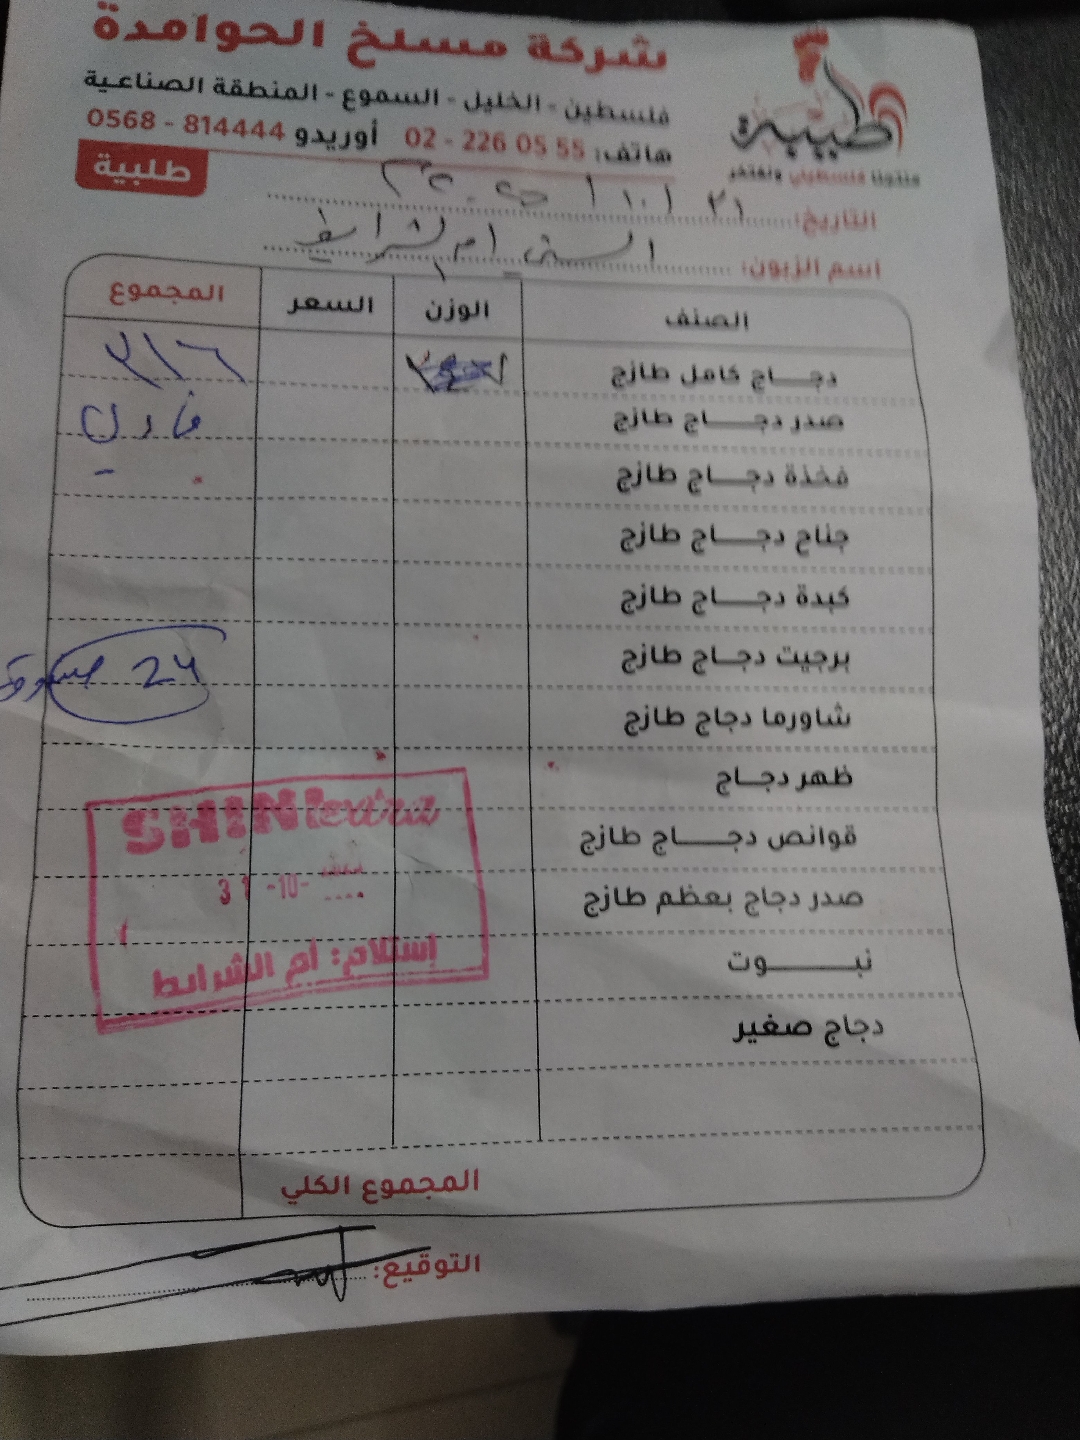 شركة مسلخ الحوامدة
فلسطين - الخليل - السموع - المنطقة الصناعية
هاتف: 02 - 226 05 55 أوريدو 0568 - 814444
طيبة
منتوجنا فلسطيني ونفتخر
طلبية
التاريخ:
اسم الزبون: السني ام الشرايط
الصنف الوزن السعر المجموع
دجاج كامل طازج ٢١٦
صدر دجاج طازج
فخذة دجاج طازج
جناح دجاج طازج
كبدة دجاج طازج
برجيت دجاج طازج 24
شاورما دجاج طازج
ظهر دجاج
قوانص دجاج طازج
صدر دجاج بعظم طازج
نبوت
دجاج صغير
SHINI extra
31 -10-
إستلام: أم الشرايط
المجموع الكلي
التوقيع: